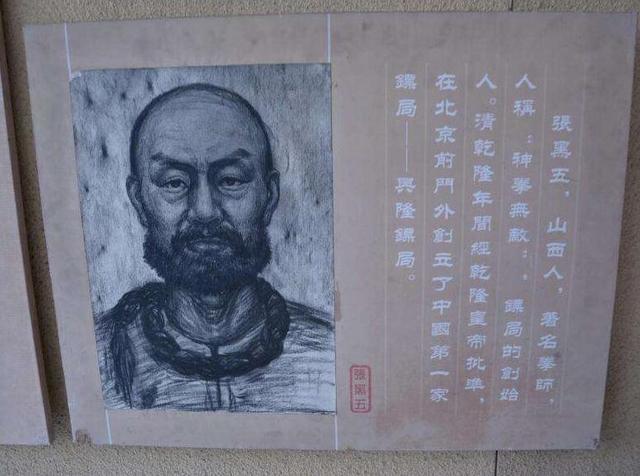 張黑五，山西人，著名拳師，
人稱：神拳無敵：，鏢局的創始
人。清乾隆年間經乾隆皇帝批準，
在北京前門外創立了中國第一家
鏢局——興隆鏢局。
張黑五